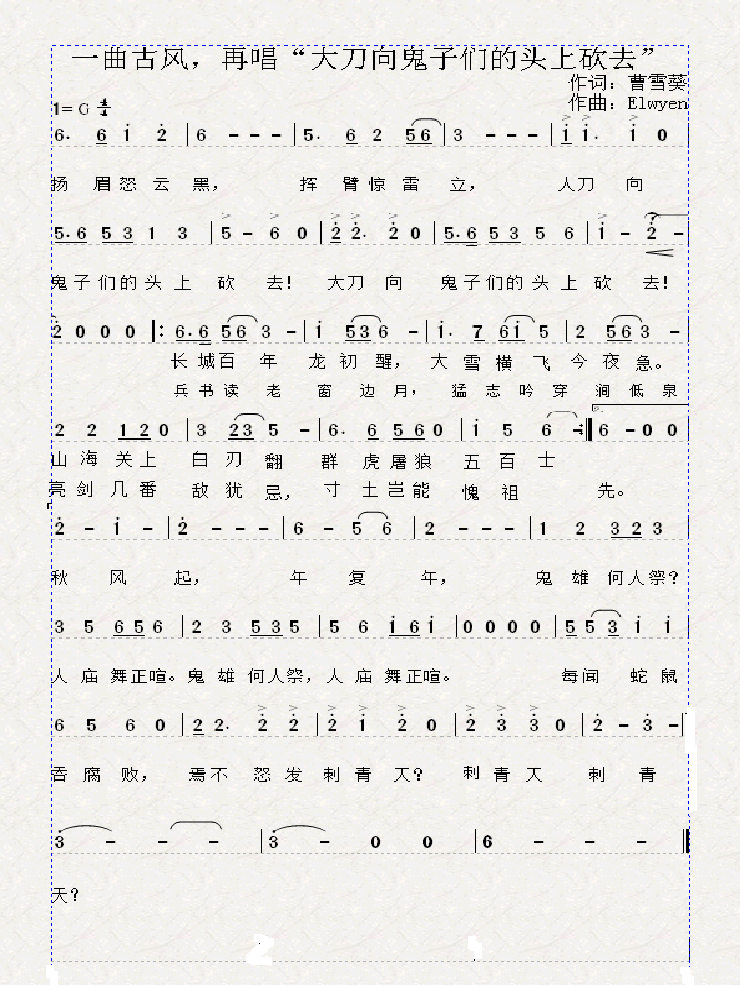 一曲古风，再唱“大刀向鬼子们的头上砍去”
作词：曹雪葵
作曲：Elwyen
1= G 4/4
6. 6 i 2 | 6 - - - | 5. 6 2 56 | 3 - - - | i i. i 0
扬 眉怒 云 黑， 挥 臂惊 雷 立， 大刀 向
5.6 53 1 3 | 5 - 6 0 | 2 2. 2 0 | 5.6 53 5 6 | i - 2 -
鬼子们的头上 砍 去！ 大刀 向 鬼子们的头上 砍 去！
2 0 0 0 |: 6.6 56 3 - | i 536 - | i. 7 6i 5 | 2 563 -
长 城百 年 龙 初 醒， 大 雪 横 飞 今 夜 急。
兵 书读 老 窗 边 月， 猛 志 吟 穿 涧 低 泉
2 2 120 | 3 23 5 - | 6. 6 560 | i 5 6 - :| 6 - 0 0
山 海 关上 白 刃 翻 群 虎屠狼 五 百 士
亮 剑 几番 敌 犹 忌， 寸 土岂能 愧 祖 先。
2 - i - | 2 - - - | 6 - 5 6 | 2 - - - | 1 2 323
秋 风 起， 年 复 年， 鬼 雄 何人祭？
3 5 656 | 2 3 535 | 5 6 i6i | 0 0 0 0 | 5 53 i i
人 庙 舞正喧。鬼 雄 何人祭，人 庙 舞正喧。 每闻 蛇 鼠
6 5 6 0 | 2 2. 2 2 | 2 i 2 0 | 2 3 3 0 | 2 - 3 - |
吞 腐 败， 焉不 怒 发 刺 青 天？ 刺 青 天 刺 青
3 - - - | 3 - 0 0 | 6 - - - ‖
天？